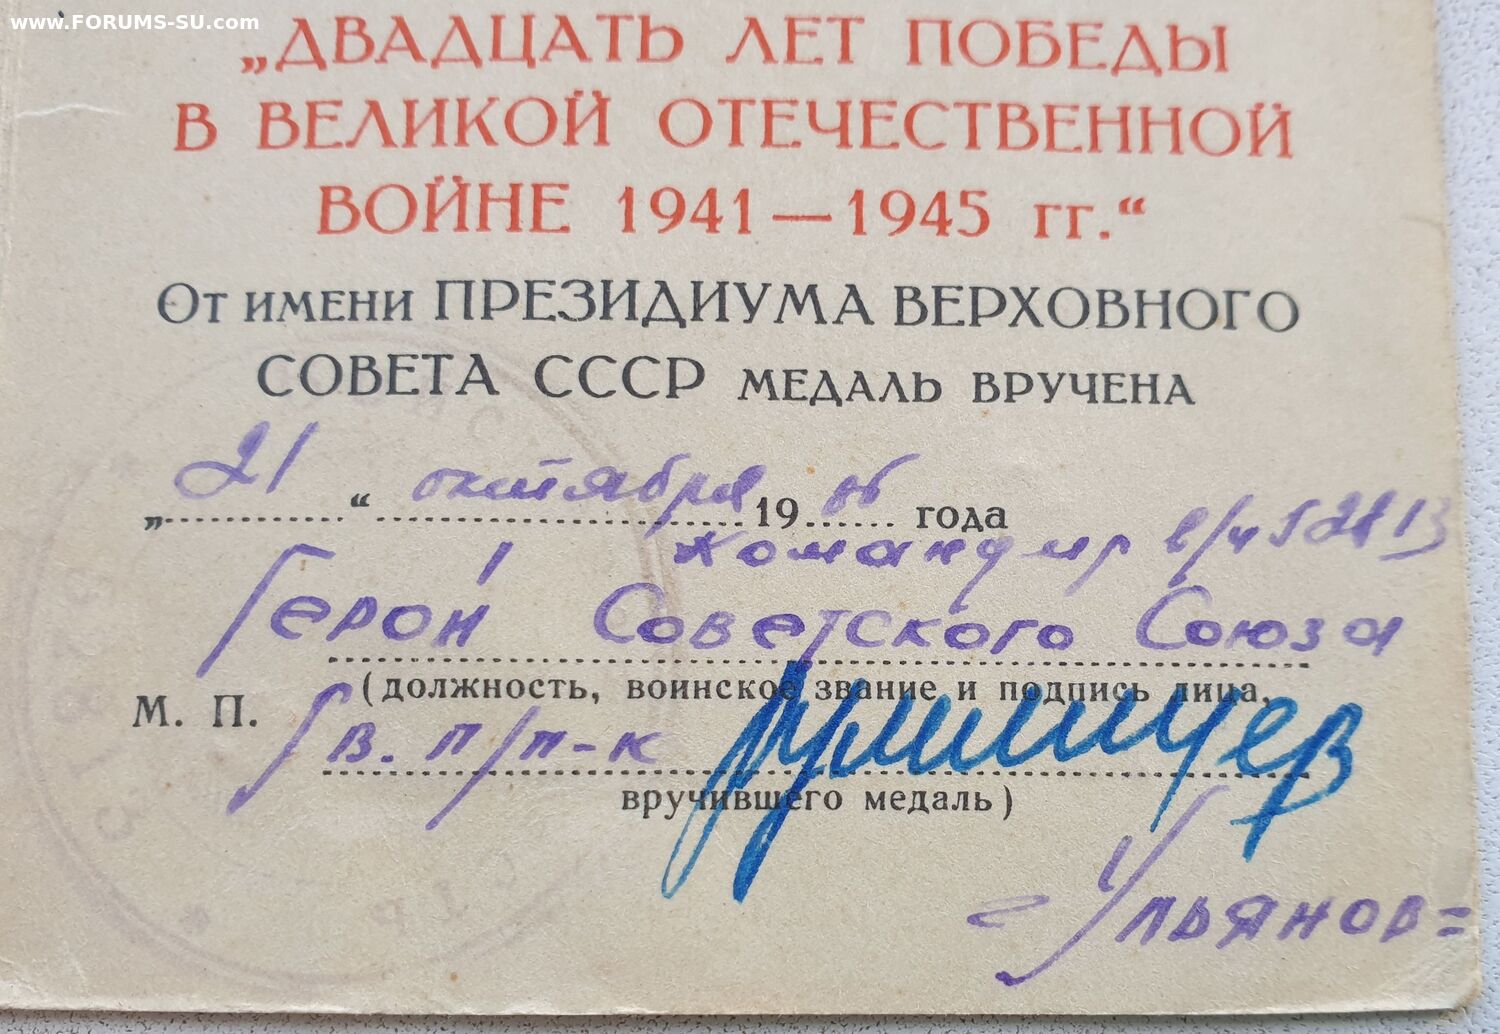 www.FORUMS-SU.com
„ДВАДЦАТЬ ЛЕТ ПОБЕДЫ
В ВЕЛИКОЙ ОТЕЧЕСТВЕННОЙ
ВОЙНЕ 1941—1945 гг.“
От имени ПРЕЗИДИУМА ВЕРХОВНОГО
СОВЕТА СССР МЕДАЛЬ ВРУЧЕНА
„21“ октября 1966 года
командир в/ч
Герой Советского Союза
(должность, воинское звание и подпись лица,
М. П.
Гв. п/п-к
вручившего медаль)
=Ульянов=